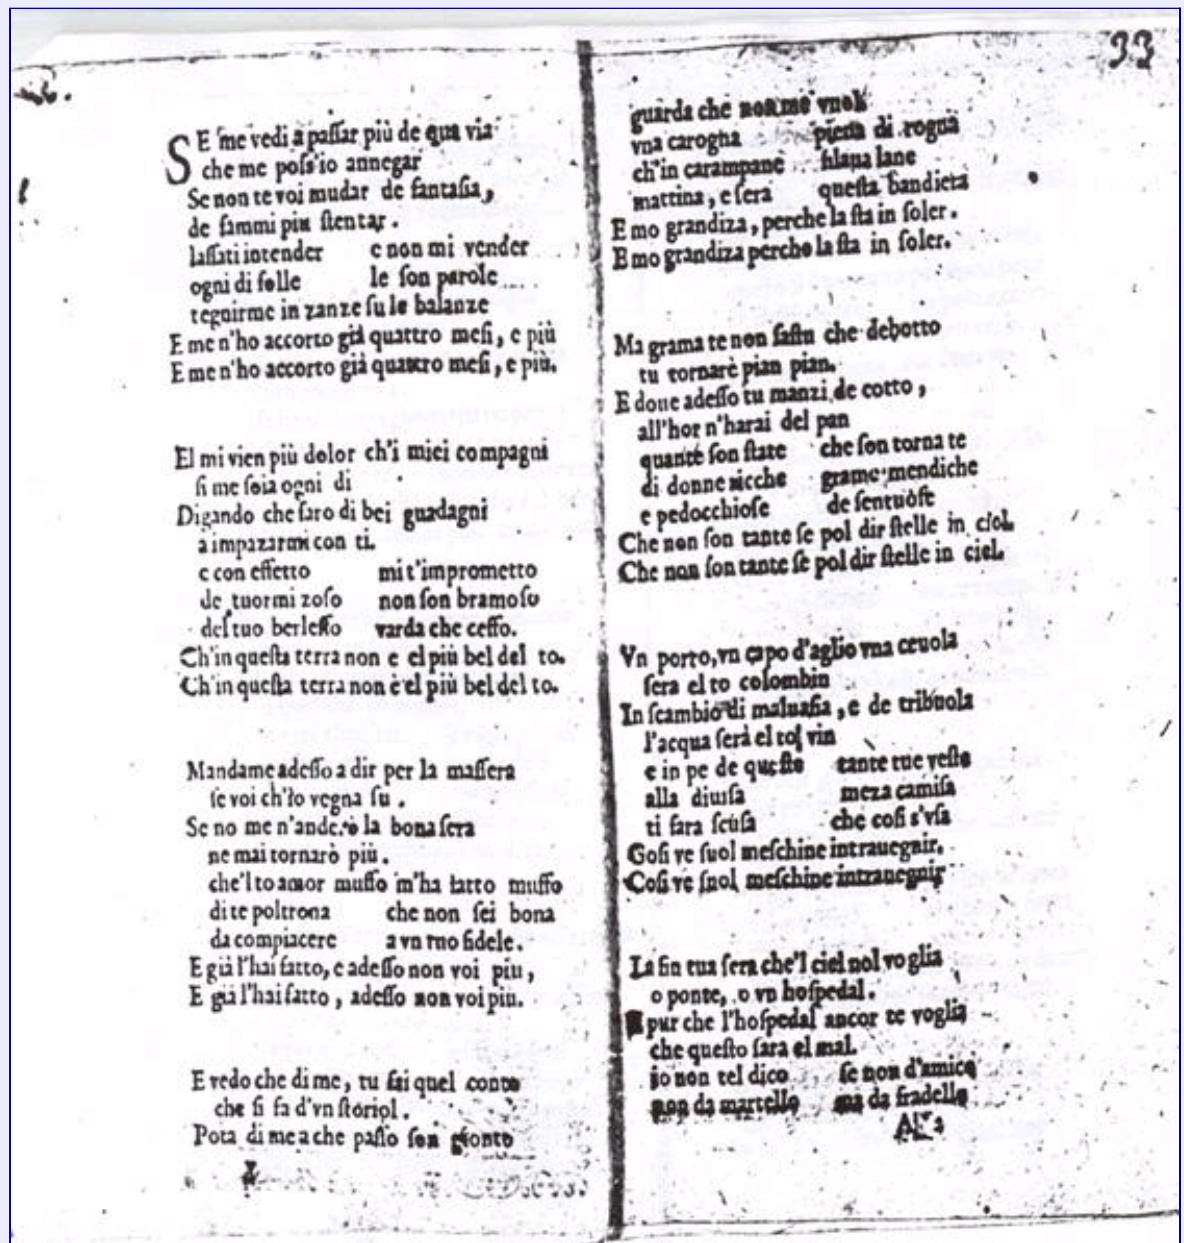 33
SE me vedi a passar più de qua via
che me poss'io annegar
Se non te voi mudar de fantasia,
de fammi piu stentar.
lassati intender e non mi vender
ogni di folle le son parole
tegnirme in zanze su le balanze
E me n'ho accorto già quattro mesi, e più
E me n'ho accorto già quattro mesi, e più.
El mi vien più dolor ch'i miei compagni
si me soia ogni di
Digando che faro di bei guadagni
a impazarmi con ti.
e con effetto mi t'imprometto
de tuormi zoso non son bramoso
del tuo berlesso varda che ceffo.
Ch'in questa terra non e el più bel del to.
Ch'in questa terra non è el più bel del to.
Mandame adesso a dir per la massera
se voi ch'io vegna su.
Se no me n'anderò la bona sera
ne mai tornarò più.
che'l to amor muffo m'ha fatto muffo
di te poltrona che non sei bona
da compiacere a vn tuo fidele.
E già l'hai fatto, e adesso non voi piu,
E già l'hai fatto, adesso non voi piu.
E vedo che di me, tu fai quel conto
che si fa d'vn storiol.
Pota di me a che passo son gionto
guarda che non me vuol
vna carogna piena di rogna
ch'in carampane filaua lane
mattina, e sera questa bandiera
E mo grandiza, perche la sta in soler.
E mo grandiza perche la sta in soler.
Ma grama te non sastu che debotto
tu tornarè pian pian.
E doue adesso tu manzi de cotto,
all'hor n'harai del pan
quante son state che son tornate
di donne ricche grame mendiche
e pedocchiose de sentuose
Che non son tante se pol dir stelle in ciel.
Che non son tante se pol dir stelle in ciel.
Vn porro, vn capo d'aglio vna ceuola
sera el to colombin
In scambio di maluasia, e de tribuola
l'acqua serà el tol vin
e in pe de queste tante tue veste
alla diuisa meza camisa
ti fara scusa che cosi s'vsa
Cosi ve suol meschine intrauegnir.
Cosi ve suol meschine intrauegnir
La fin tua sera che'l ciel nol voglia
o ponte, o vn hospedal.
E pur che l'hospedal ancor te voglia
che questo sara el mal.
io non tel dico se non d'amico
non da martello ma da fradello